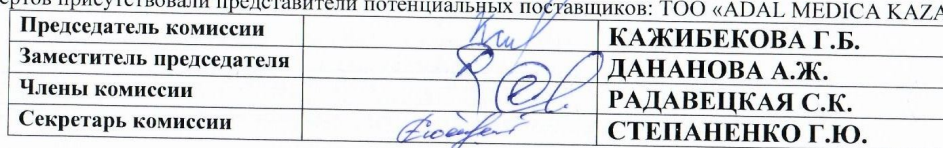 присутствовали представители потенциальных поставщиков: ТОО «ADAL MEDICA KAZA
Председатель комиссии КАЖИБЕКОВА Г.Б.
Заместитель председателя ДАНАНОВА А.Ж.
Члены комиссии РАДАВЕЦКАЯ С.К.
Секретарь комиссии СТЕПАНЕНКО Г.Ю.